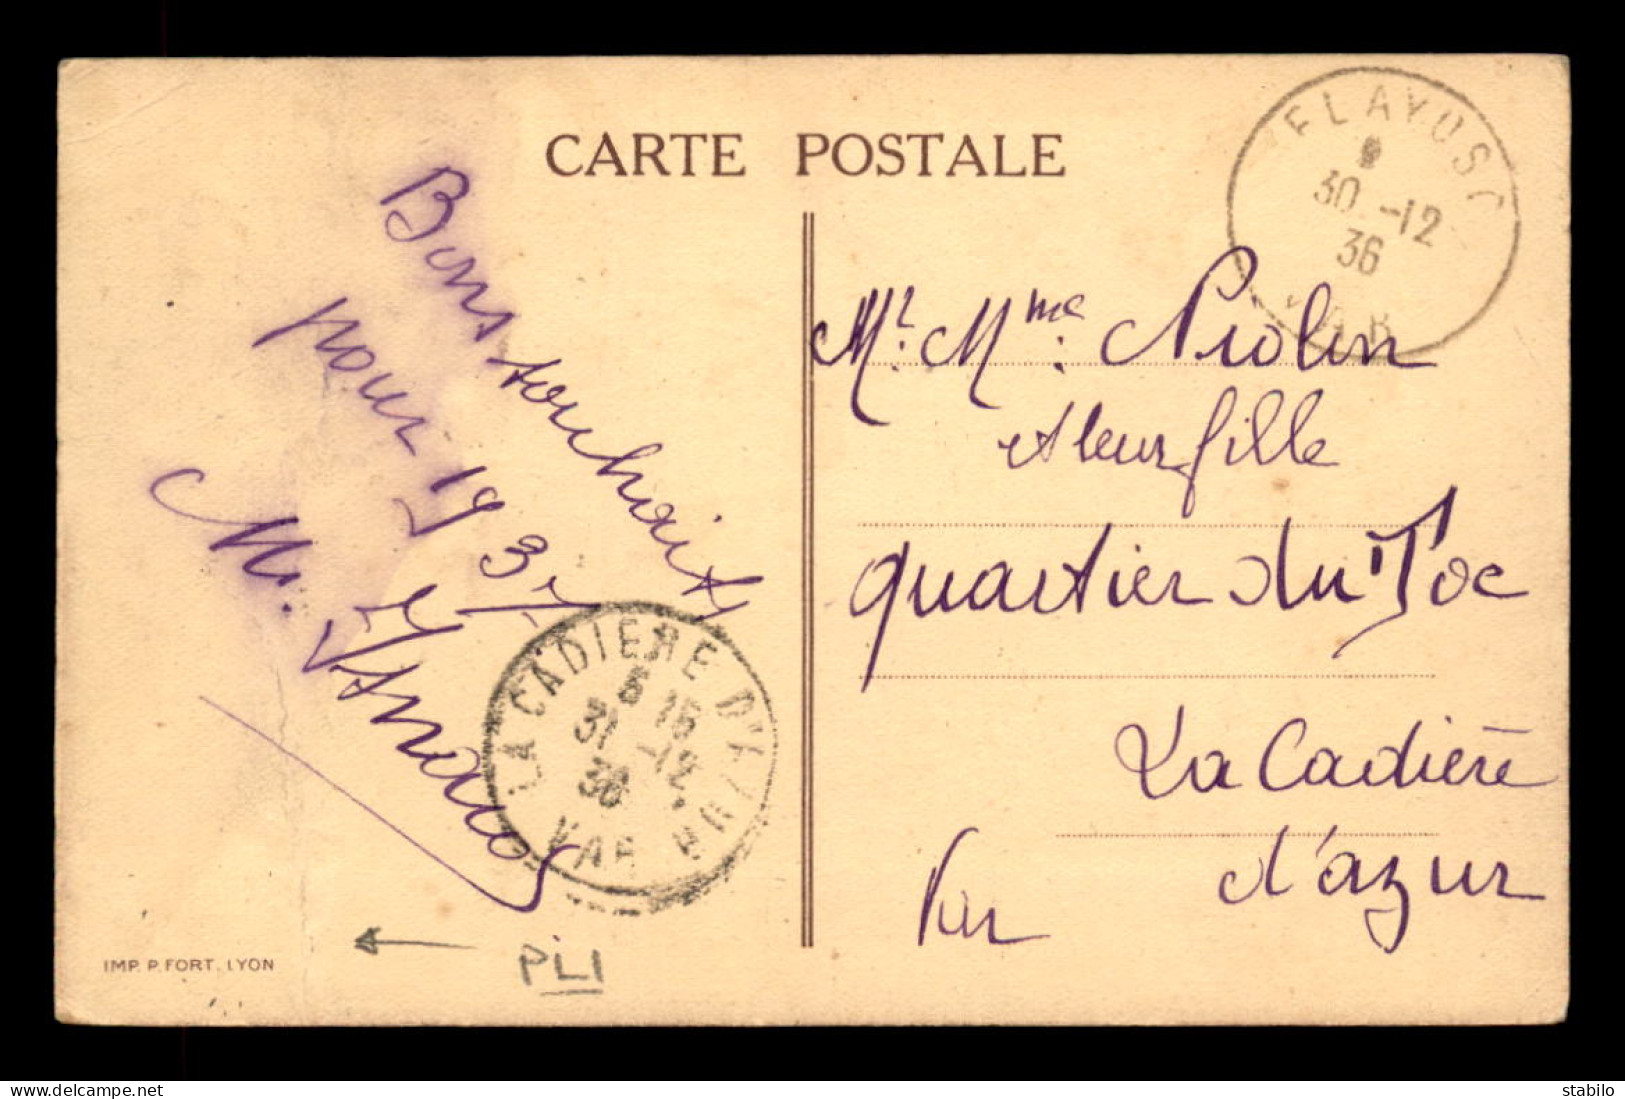 CARTE POSTALE
Bons souhaits
pour 1937
M.
IMP. P. FORT. LYON
PLI
LA CADIERE D'AZUR
31 -12
36
VAR
FLAYOSC
30 -12
36
VAR
Mr. Mme. Piolin
et leur fille
quartier du Toc
La Cadière
d'azur
Var
www.delcampe.net
stabilo